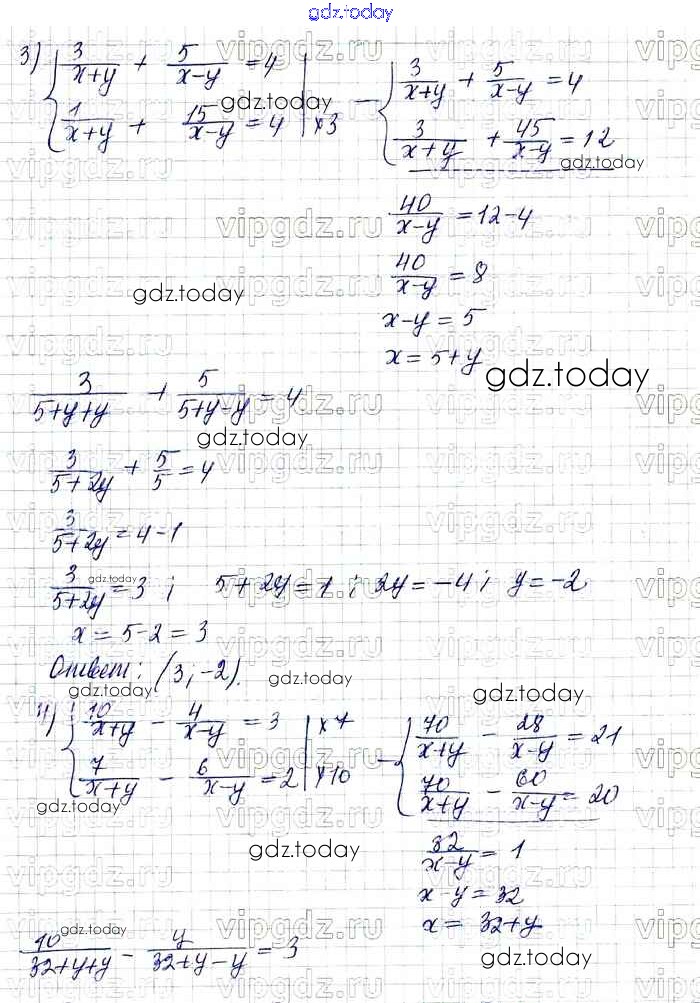 gdz.today
3) { 3/(x+y) + 5/(x-y) = 4
1/(x+y) + 15/(x-y) = 4 | x3
- { 3/(x+y) + 5/(x-y) = 4
3/(x+y) + 45/(x-y) = 12
40/(x-y) = 12-4
40/(x-y) = 8
x-y = 5
x = 5+y
3/(5+y+y) + 5/(5+y-y) = 4
3/(5+2y) + 5/5 = 4
3/(5+2y) = 4-1
3/(5+2y) = 3 ; 5+2y = 1 ; 2y = -4 ; y = -2
x = 5-2 = 3
Ответ: (3; -2).
4) { 10/(x+y) - 4/(x-y) = 3 | x7
7/(x+y) - 6/(x-y) = 2 | x10
- { 70/(x+y) - 28/(x-y) = 21
70/(x+y) - 60/(x-y) = 20
32/(x-y) = 1
x-y = 32
x = 32+y
10/(32+y+y) - 4/(32+y-y) = 3